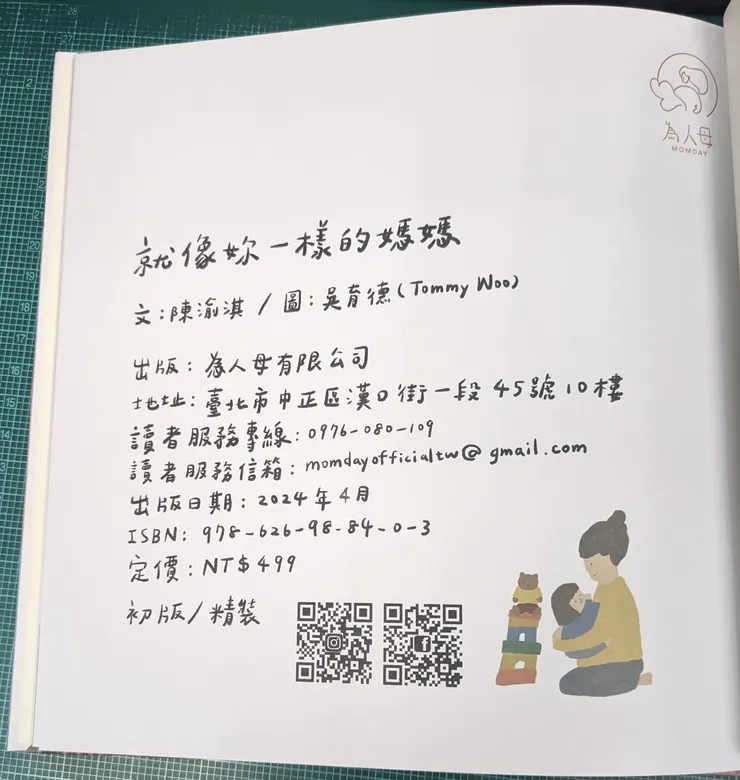 為人母
MOMDAY
就像妳一樣的媽媽
文:陳渝淇 / 圖:吳育德(Tommy Woo)
出版:為人母有限公司
地址:臺北市中正區漢口街一段 45號10樓
讀者服務專線:0976-080-109
讀者服務信箱:momdayofficialtw@gmail.com
出版日期:2024年4月
ISBN: 978-626-98-84-0-3
定價:NT$499
初版/精裝